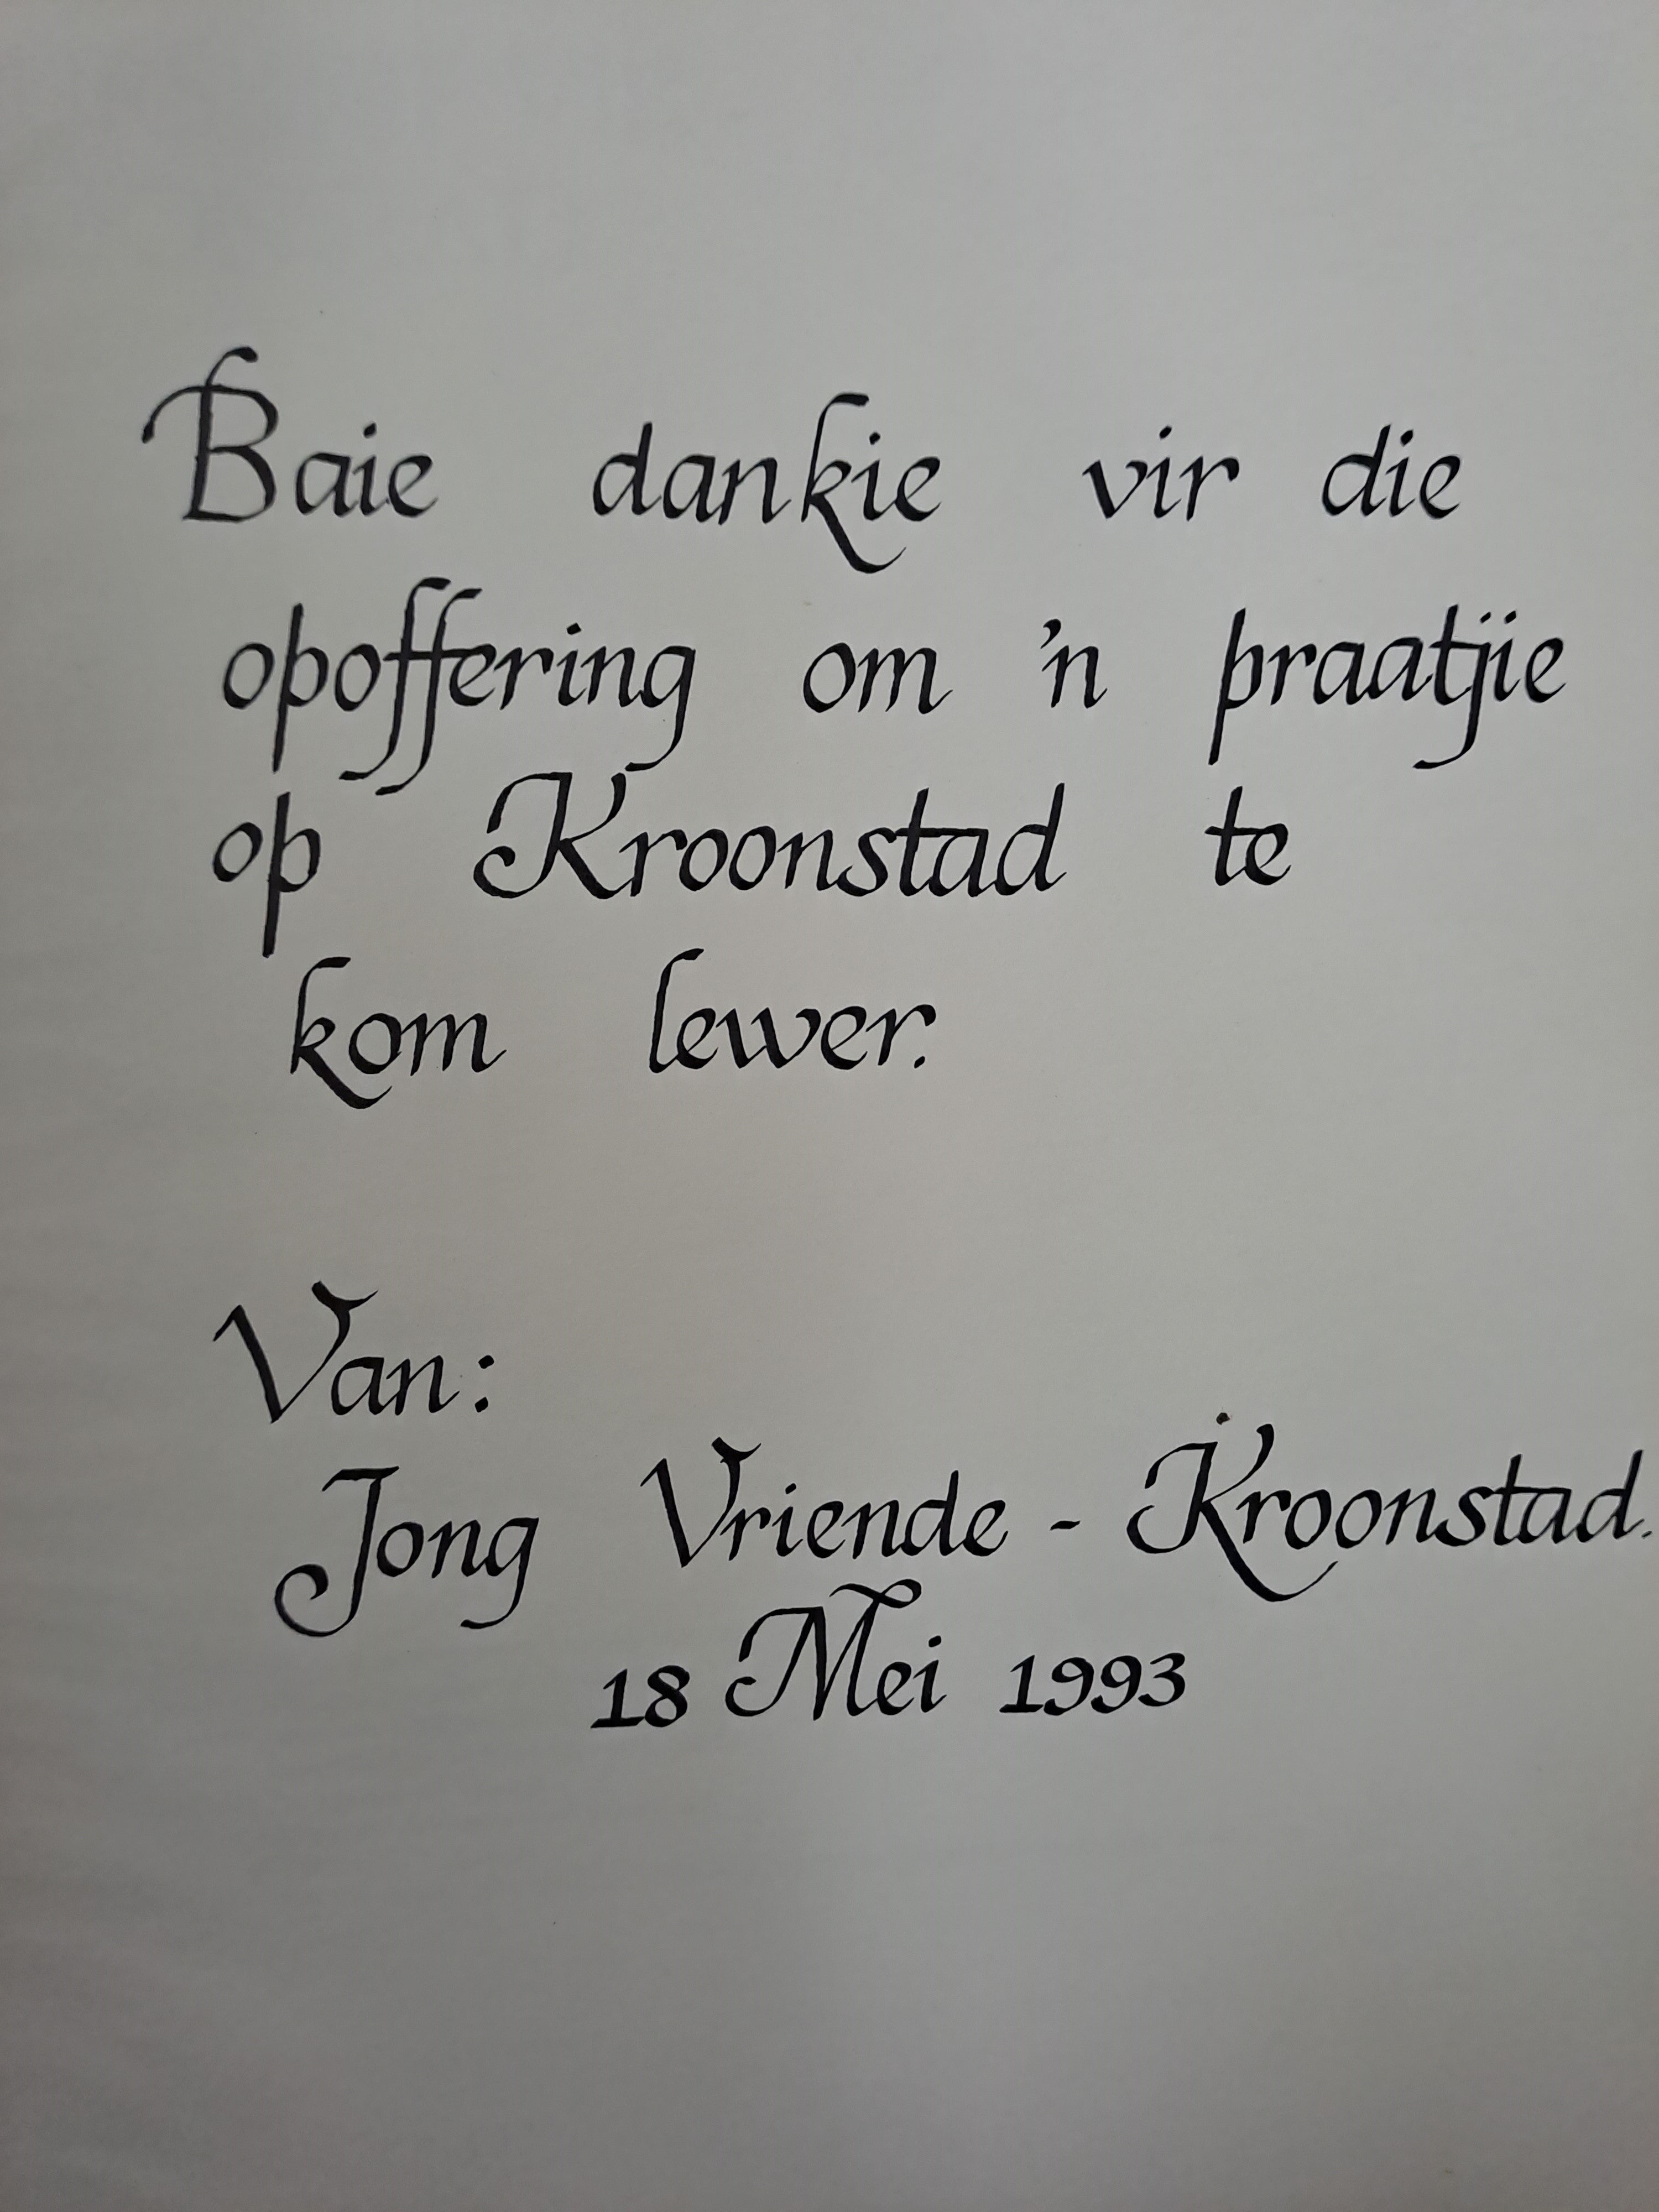 Baie dankie vir die
opoffering om 'n praatjie
op Kroonstad te
kom lewer.
Van:
Jong Vriende - Kroonstad.
18 Mei 1993